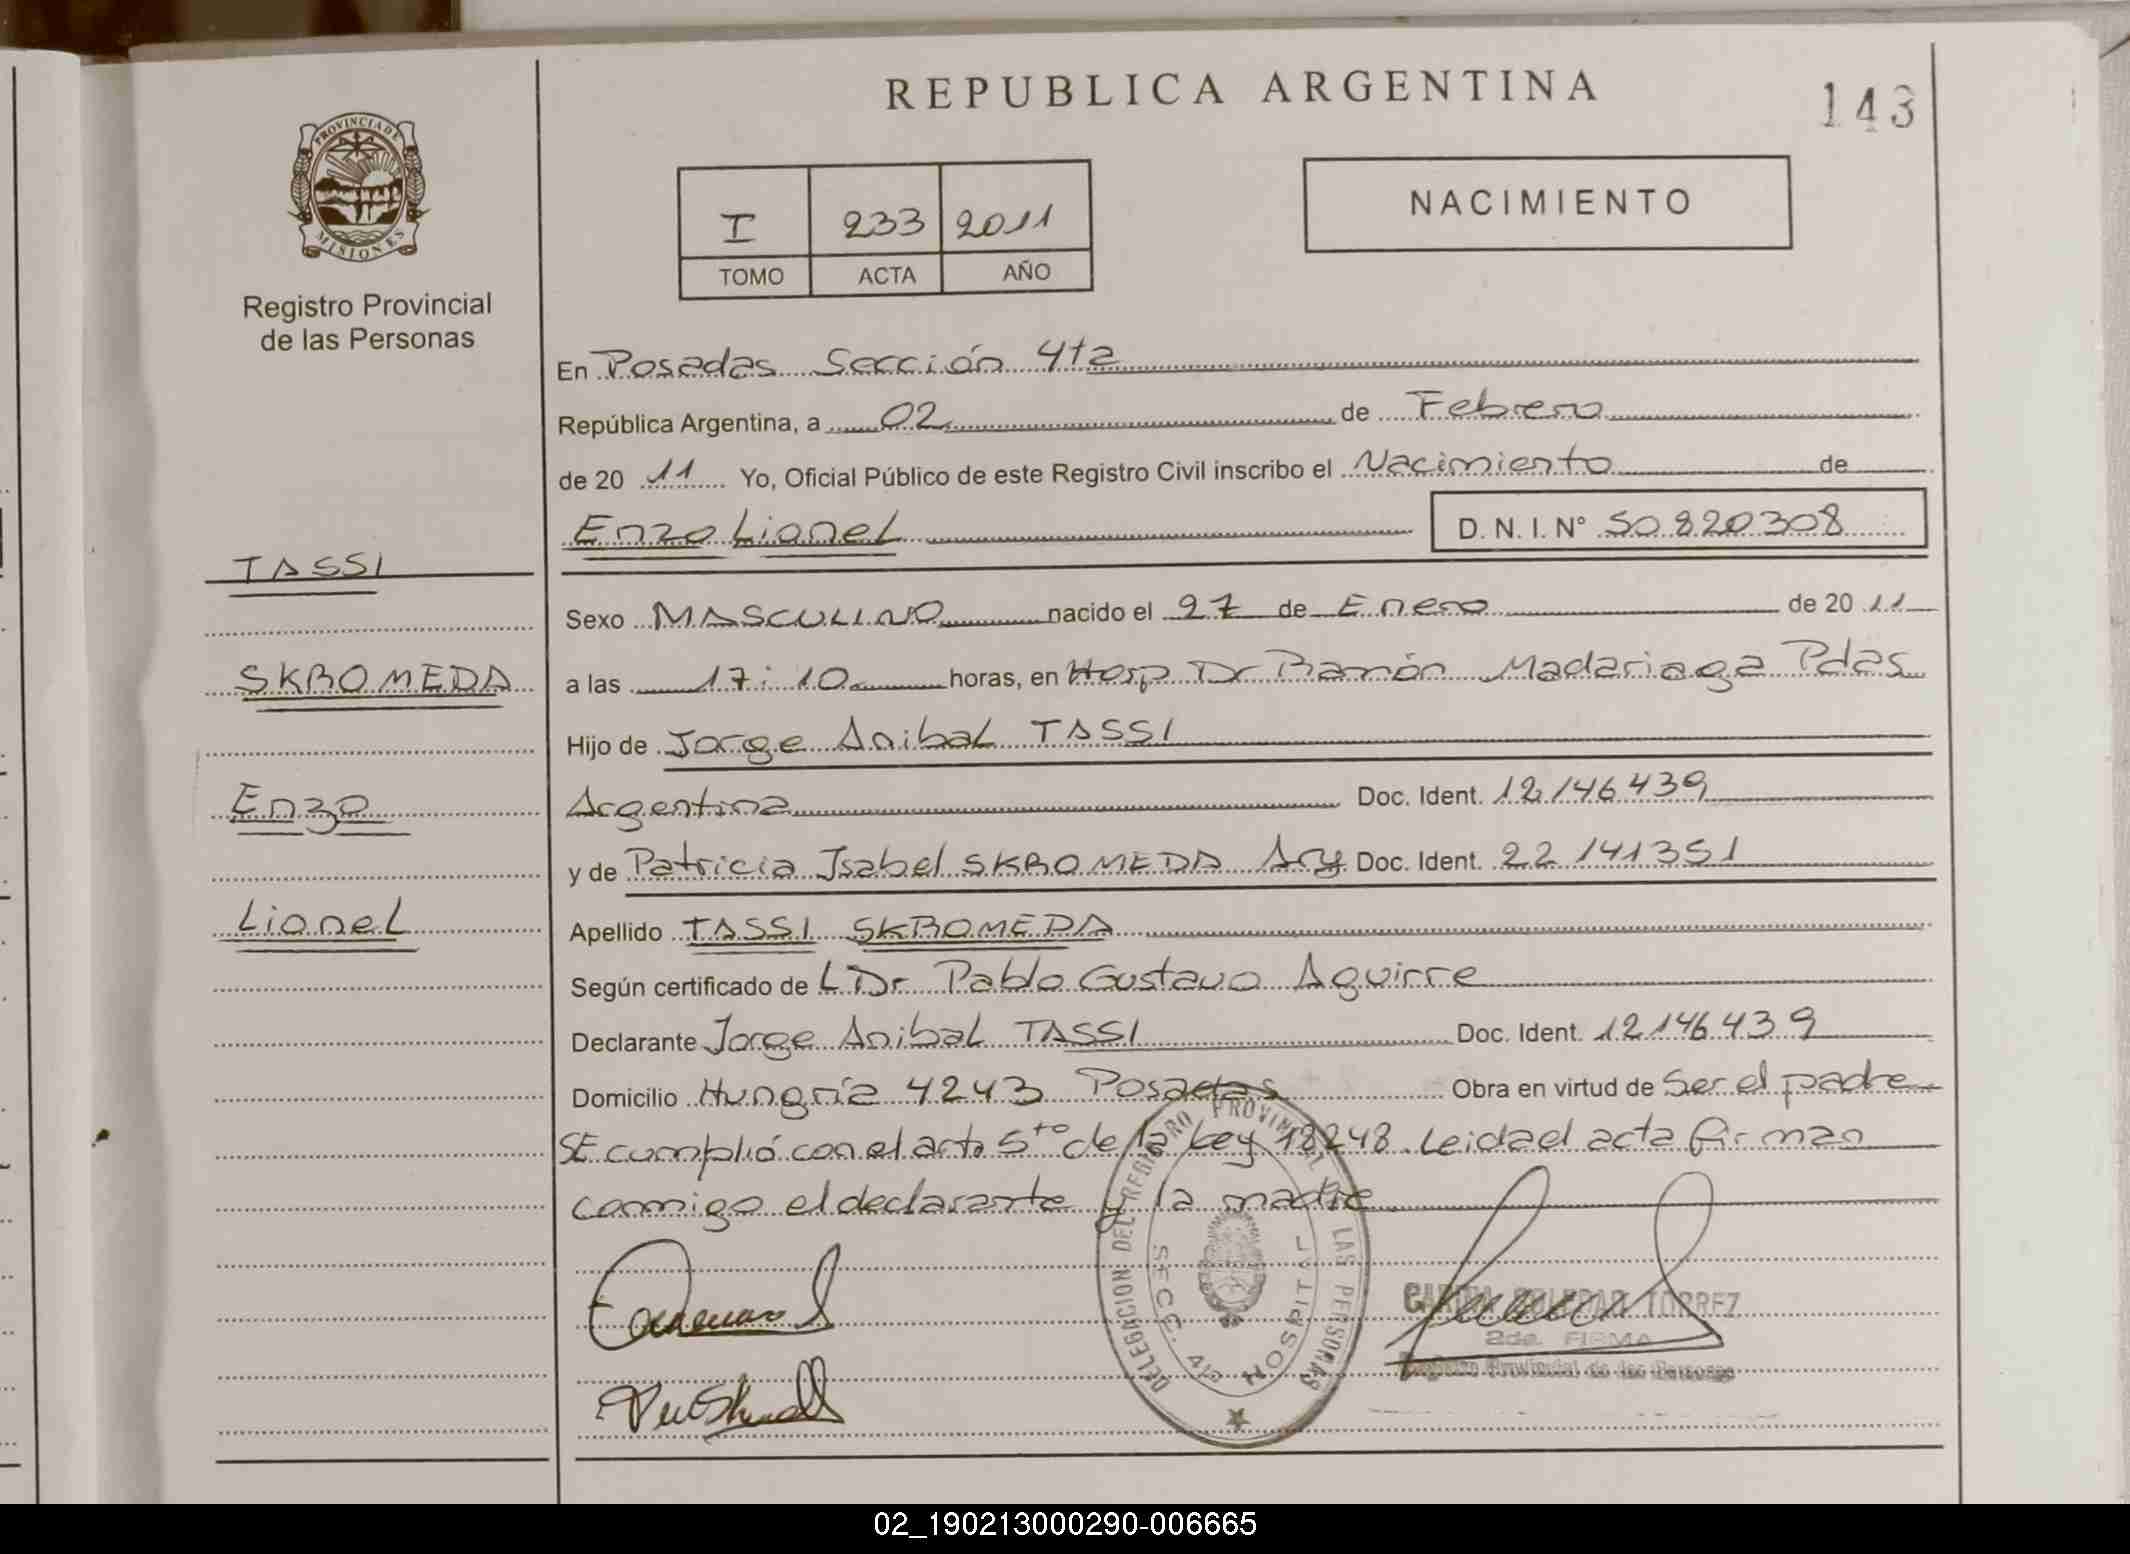 REPUBLICA ARGENTINA
143
PROVINCIA DE
MISIONES
Registro Provincial
de las Personas
I 233 2011
TOMO ACTA AÑO
NACIMIENTO
En Posadas Sección 4ta
República Argentina, a 02 de Febrero
de 20 11 Yo, Oficial Público de este Registro Civil inscribo el Nacimiento de
Enzo Lionel D. N. I. N° 50.820308
TASSI
SKROMEDA
Enzo
Lionel
Sexo MASCULINO nacido el 27 de Enero de 20 11
a las 17:10 horas, en Hosp Dr Ramón Madariaga Pdas
Hijo de Jorge Anibal TASSI
Argentina Doc. Ident. 12146439
y de Patricia Isabel SKROMEDA Arg Doc. Ident. 22 141351
Apellido TASSI SKROMEDA
Según certificado de L Dr Pablo Gustavo Aguirre
Declarante Jorge Anibal TASSI Doc. Ident. 12146439
Domicilio Hungría 4243 Posadas Obra en virtud de Ser el padre
SE cumplió con el arto 5to de la Ley 18248. Leida el acta firman
conmigo el declarante y la madre
DELEGACION DEL REGISTRO PROVINCIAL DE LAS PERSONAS
SECC. 4ta HOSPITAL
CARINA SOLEDAD TORREZ
2da. FIRMA
Registro Provincial de las Personas
02_190213000290-006665